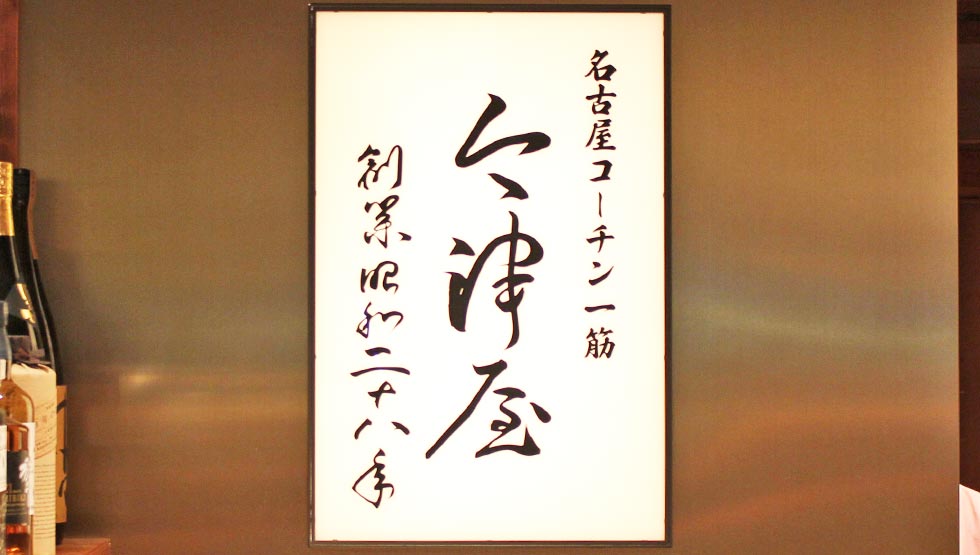 名古屋コーチン一筋
今津屋
創業昭和二十八年